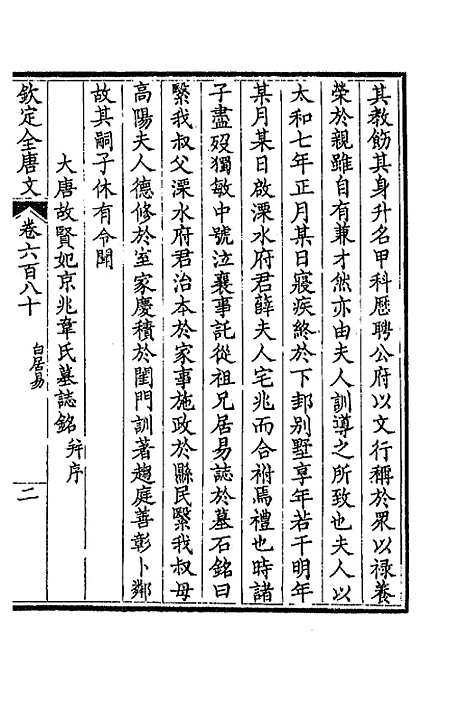 其教飭其身升名甲科歷聘公府以文行稱於眾以祿養
榮於親雖自有兼才然亦由夫人訓導之所致也夫人以
太和七年正月某日寢疾終於下邽別墅享年若干明年
某月某日啟溧水府君薛夫人宅兆而合祔焉禮也時諸
子盡歿獨敏中號泣襄事託從祖兄居易誌於墓石銘曰
繄我叔父溧水府君治本於家事施政於縣民繄我叔母
高陽夫人德修於室家慶積於閨門訓著趨庭善彰卜鄰
故其嗣子休有令聞
大唐故賢妃京兆韋氏墓誌銘 并序
欽定全唐文 卷六百八十 白居易 二